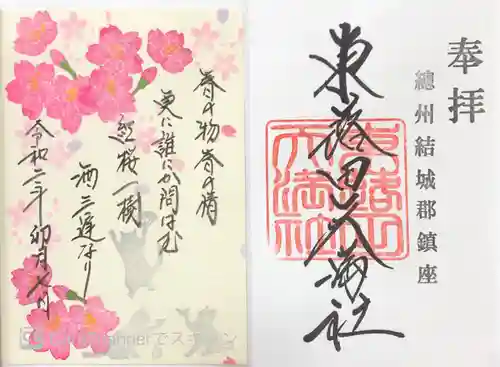 奉拝
總州結城郡鎮座
東蕗田天満社
春の物春の情
更に誰にか問はむ
紅桜一樹
酒三遅なり
令和二年 卯月七日
Scannerでスキャン